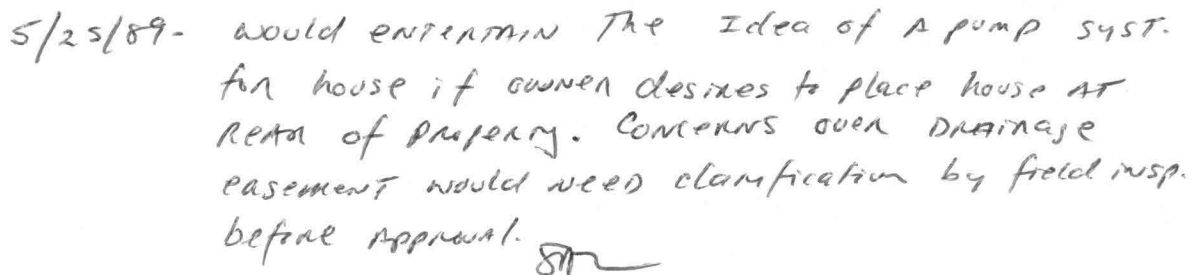 5/25/89- would entertain the Idea of A pump syst.
for house if owner desires to place house AT
Rear of Property. Concerns over Drainage
easement would need clarification by field insp.
before Approval.